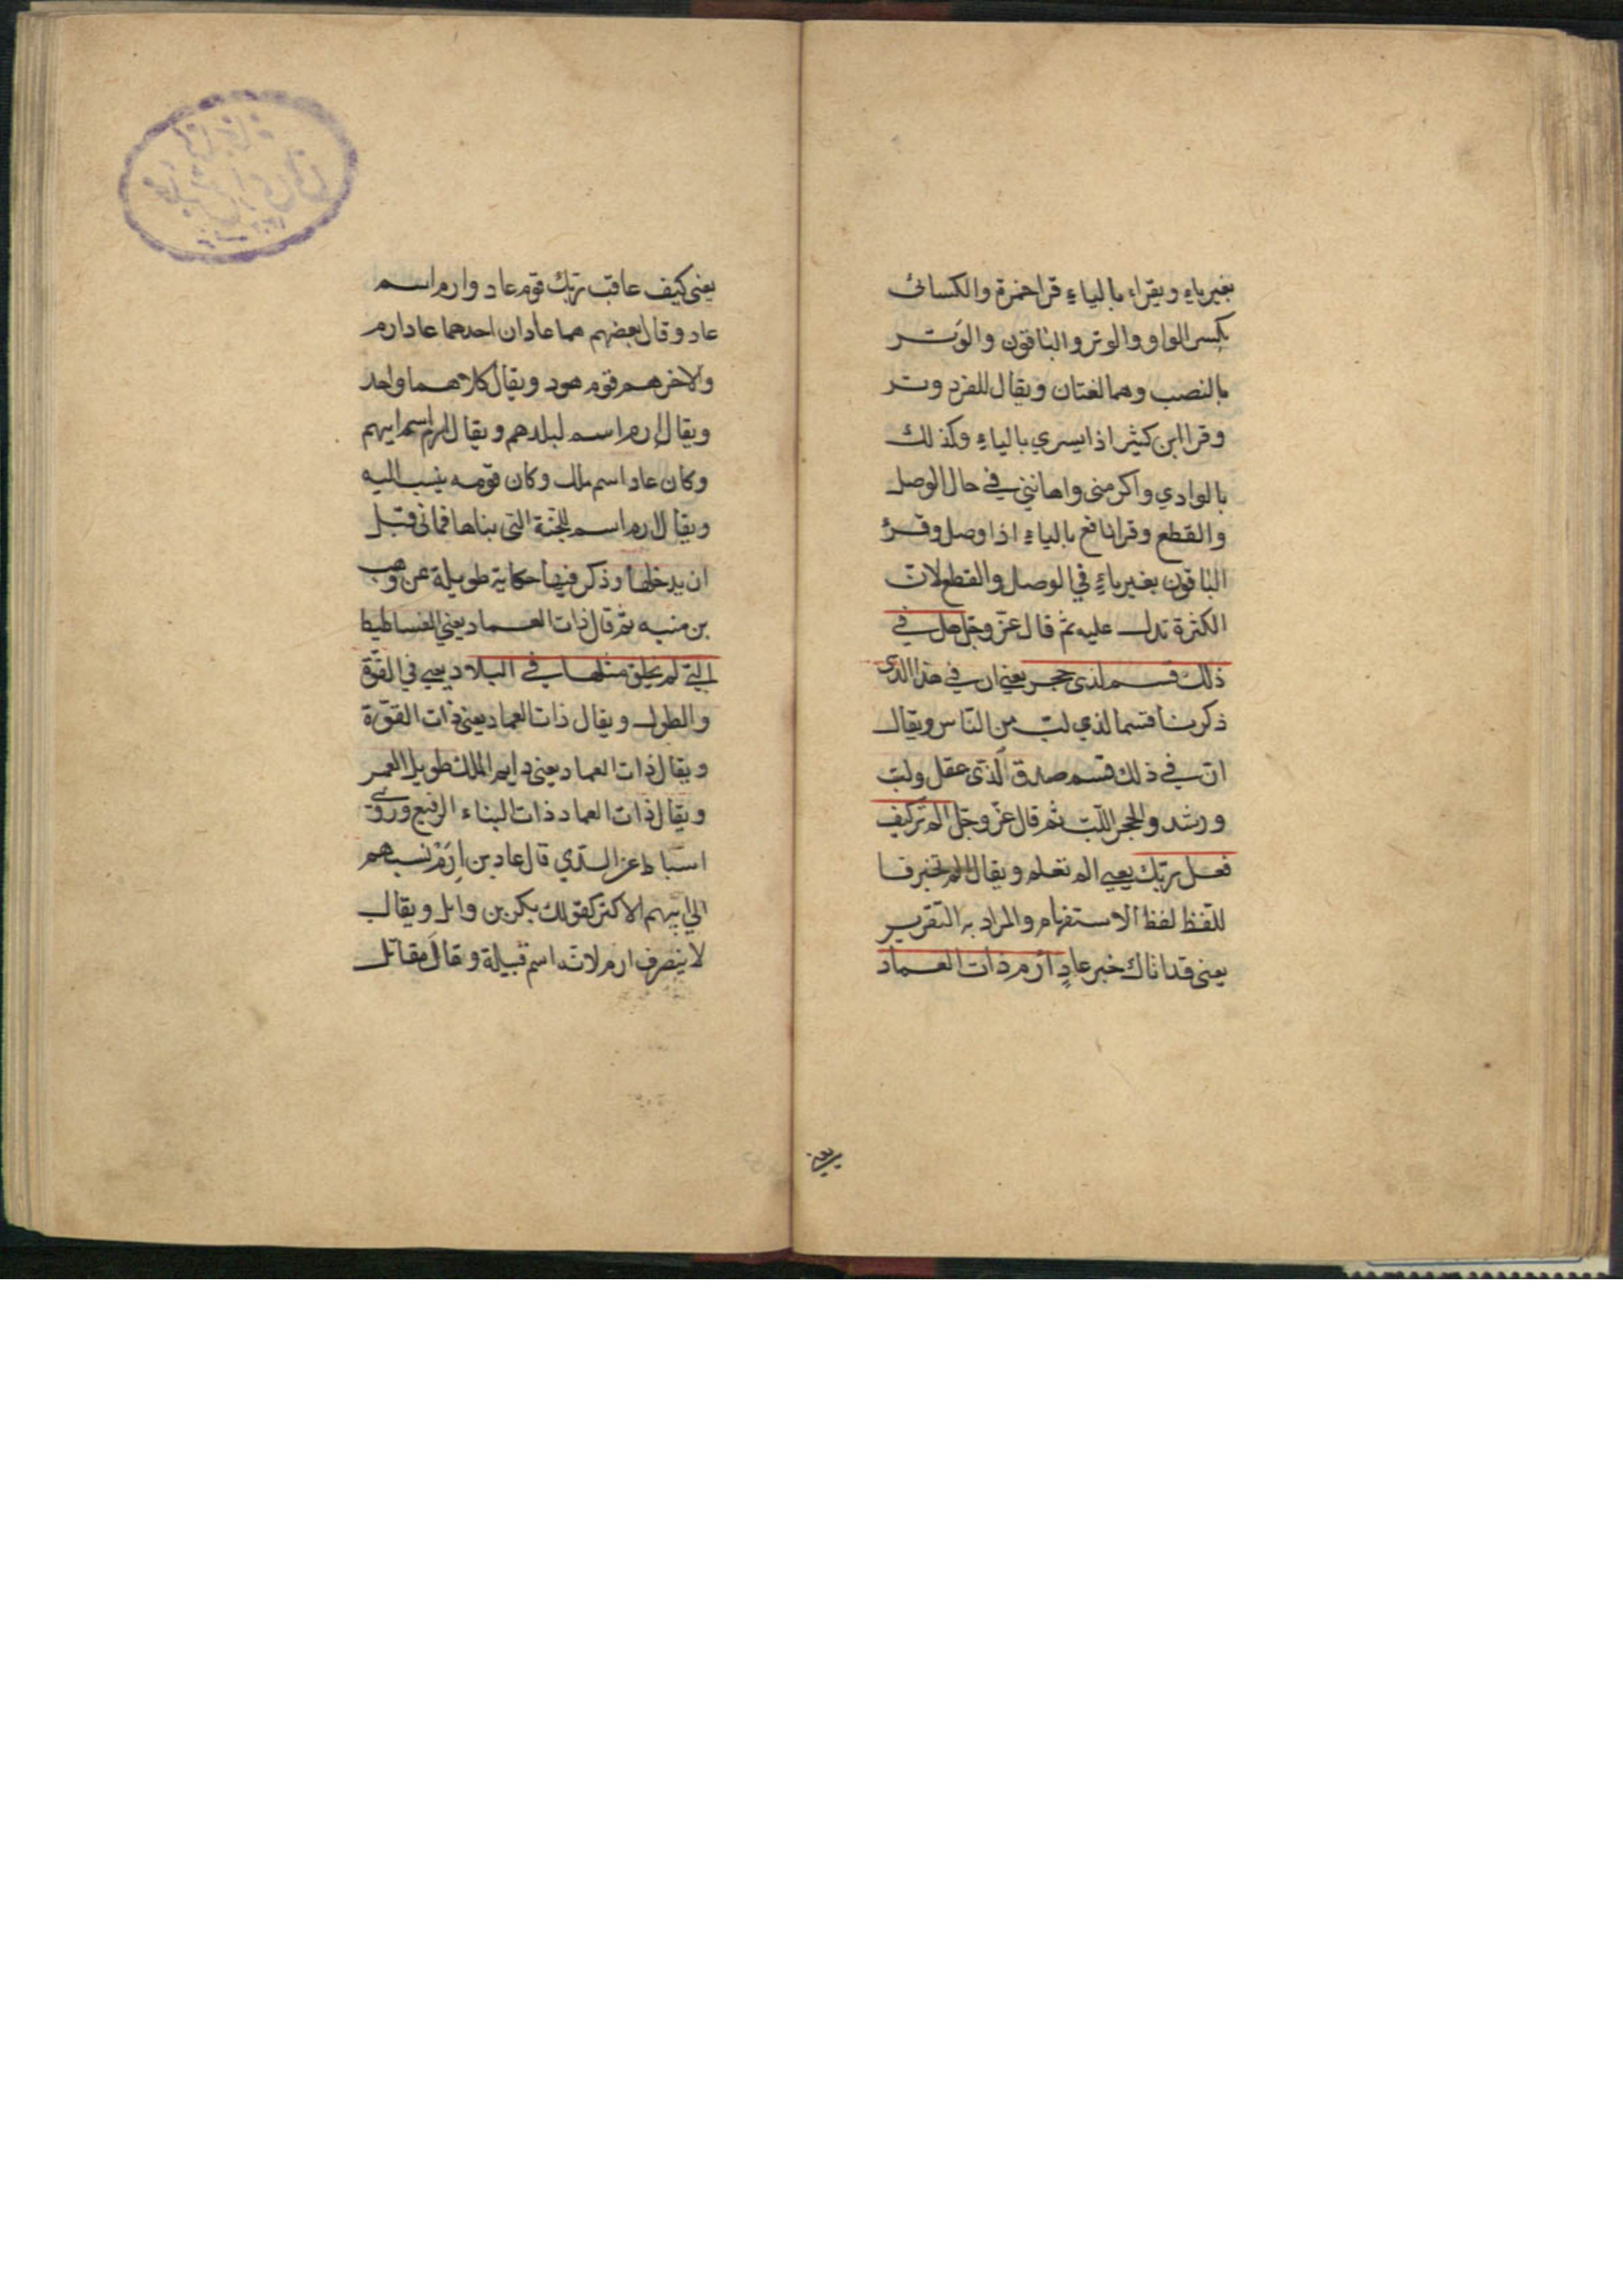 بغير ياءٍ ويقراء بالياءِ قرا حمزة والكسائى
بكسر الواو والوتر والباقون والوَتر
بالنصب وهما لغتان ويقال للفرد وتر
وقرا ابن كثير اذا يسري بالياءِ وكذلك
بالوادي واكرمنى واهاننى في حال الوصل
والقطع وقرا نافع بالياءِ اذا وصل وقرئ
الباقون بغير ياءٍ في الوصل والقطع لان
الكثرة تدل عليه ثم قال عزّ وجل هل في
ذلك قسم لذى حجر يعني ان في هذا الذى
ذكرنا قسما لذي لب من الناس ويقال
ان في ذلك قسم صدق لذى عقل ولب
ورشد والحجر اللب ثم قال عزّ وجلّ الم تر كيف
فعل ربّك يعني الم تعلم ويقال الم تخبر فا
للّفظ لفظ الاستفهام والمراد به التقرير
يعنى قد اتاك خبر عادٍ ارم ذات العماد
يعنى
يعنى كيف عاقب ربّك قوم عاد وارم اسم
عاد وقال بعضهم هما عادان احدهما عاد ارم
والاخر هم قوم هود ويقال كلاهما واحد
ويقال ارم اسم لبلدهم ويقال ارم اسم ابيهم
وكان عاد اسم ملك وكان قومه ينسب اليه
ويقال ارم اسم للجنّة التى بناها فمات قبل
ان يدخلها وذكر فيها حكاية طويلة عن وهب
بن منبه ثم قال ذات العماد يعني الفساطيط
التي لم يخلق مثلها في البلاد يعني في القوّة
والطول ويقال ذات العماد يعنى ذات القوّة
ويقال ذات العماد يعنى دايم الملك طويل العمر
ويقال ذات العماد ذات البناء الرفيع وروى
اسباط عن السّدّي قال عاد بن اِرَمْ نسبهم
الي ابيهم الاكبر كقولك بكر بن وايل ويقال
لا ينصرف ارم لانه اسم قبيلة وقال مقاتل